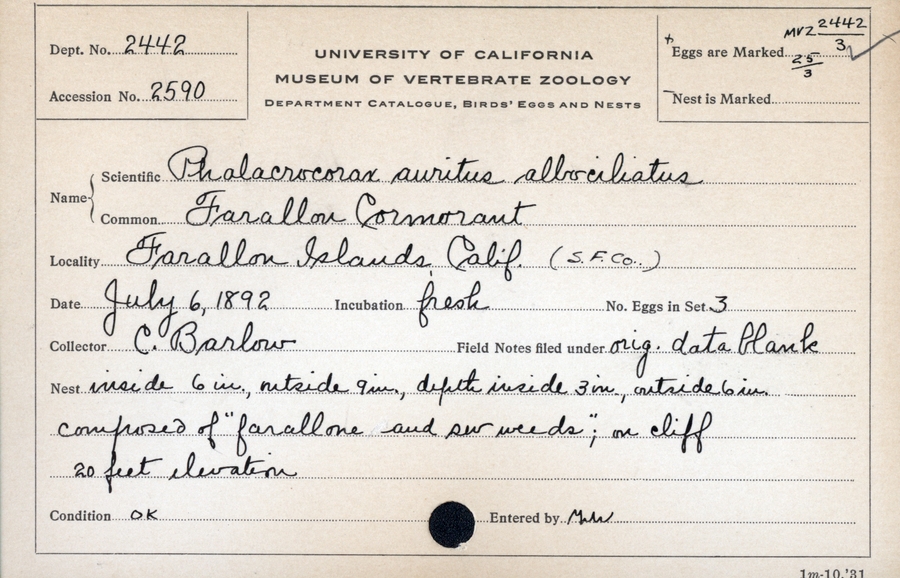 Dept. No. 2442
Accession No. 2590
UNIVERSITY OF CALIFORNIA
MUSEUM OF VERTEBRATE ZOOLOGY
DEPARTMENT CATALOGUE, BIRDS' EGGS AND NESTS
+ Eggs are Marked MVZ 2442/3 25/3
- Nest is Marked
Name Scientific Phalacrocorax auritus albociliatus
Common Farallon Cormorant
Locality Farallon Islands, Calif. (S.F.Co..)
Date July 6, 1892 Incubation fresh No. Eggs in Set 3
Collector C. Barlow Field Notes filed under orig. data blank
Nest inside 6 in., outside 9 in., depth inside 3 in, outside 6 in.
composed of "farallone and sur weeds"; on cliff
20 feet elevation
Condition OK Entered by
1m-10,'31